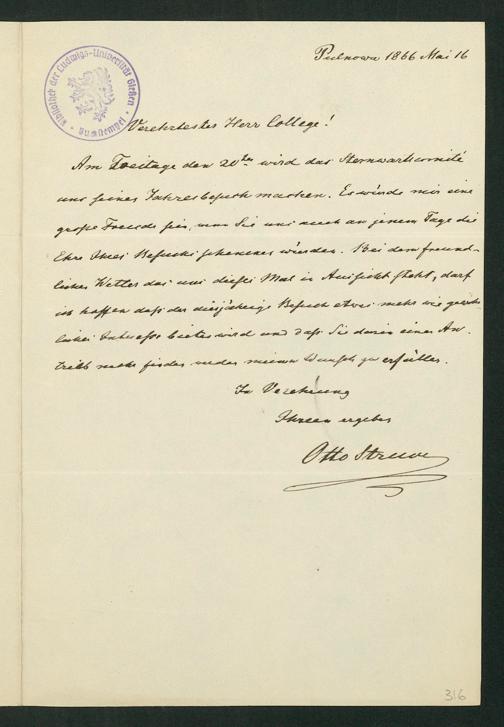 Bibliothek der Ludwigs-Universität Gießen
Buchstempel
Pulkowa 1866 Mai 16
Verehrtester Herr College!
Am Freitage den 20ten wird das Sternwartcomité
uns seinen Jahresbesuch machen. Es würde mir eine
große Freude sein, wenn Sie uns auch an jenem Tage die
Ehre Ihres Besuchs schenken würden. Bei dem freund-
lichen Wetter das uns dieses Mal in Aussicht steht, darf
ich hoffen daß der diesjährige Besuch etwas mehr wie gewöhn
liches Interesse bieten wird und daß Sie darin einen An-
trieb mehr finden werden meinen Wunsch zu erfüllen.
In Verehrung
Ihnen ergeben
Otto Struve
316